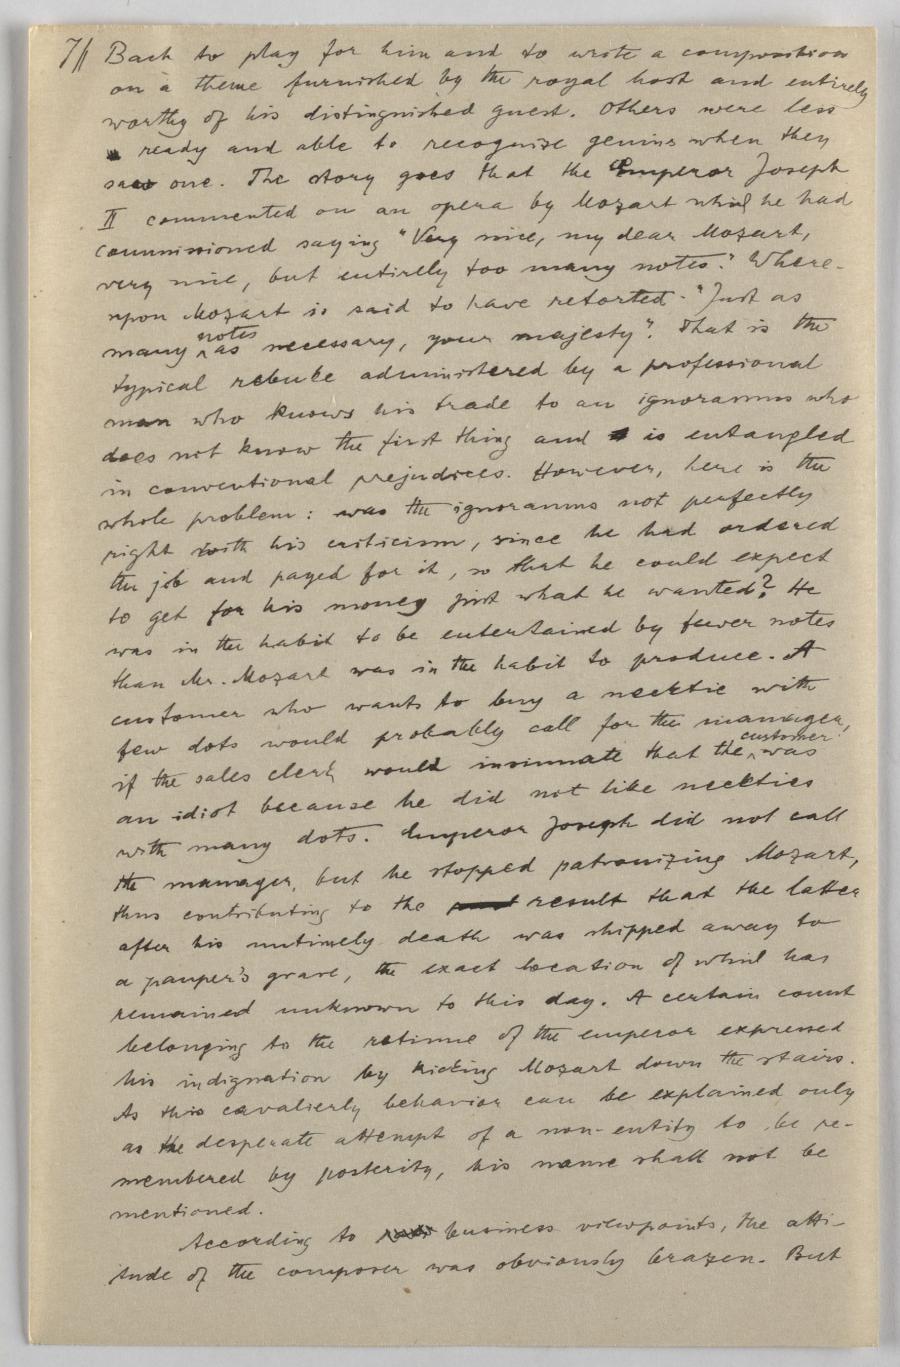 7/ Bach to play for him and to write a composition
on a theme furnished by the royal host and entirely
worthy of his distinguished guest. Others were less
ready and able to recognize genius when they
saw one. The story goes that the Emperor Joseph
II commented on an opera by Mozart which he had
commissioned saying "Very nice, my dear Mozart,
very nice, but entirely too many notes." Where-
upon Mozart is said to have retorted: "Just as
many notes as necessary, your majesty". That is the
typical rebuke administered by a professional
man who knows his trade to an ignoramus who
does not know the first thing and is entangled
in conventional prejudices. However, here is the
whole problem: was the ignoramus not perfectly
right with his criticism, since he had ordered
the job and payed for it, so that he could expect
to get for his money just what he wanted? He
was in the habit to be entertained by fewer notes
than Mr. Mozart was in the habit to produce. A
customer who wants to buy a necktie with
few dots would probably call for the manager,
if the sales clerk would insinuate that the customer was
an idiot because he did not like neckties
with many dots. Emperor Joseph did not call
the manager, but he stopped patronizing Mozart,
thus contributing to the result that the latter
after his untimely death was shipped away to
a pauper's grave, the exact location of which has
remained unknown to this day. A certain count
belonging to the retinue of the emperor expressed
his indignation by kicking Mozart down the stairs.
As this cavalierly behavior can be explained only
as the desperate attempt of a non-entity to be re-
membered by posterity, his name shall not be
mentioned.
According to business viewpoints, the atti-
tude of the composer was obviously brazen. But